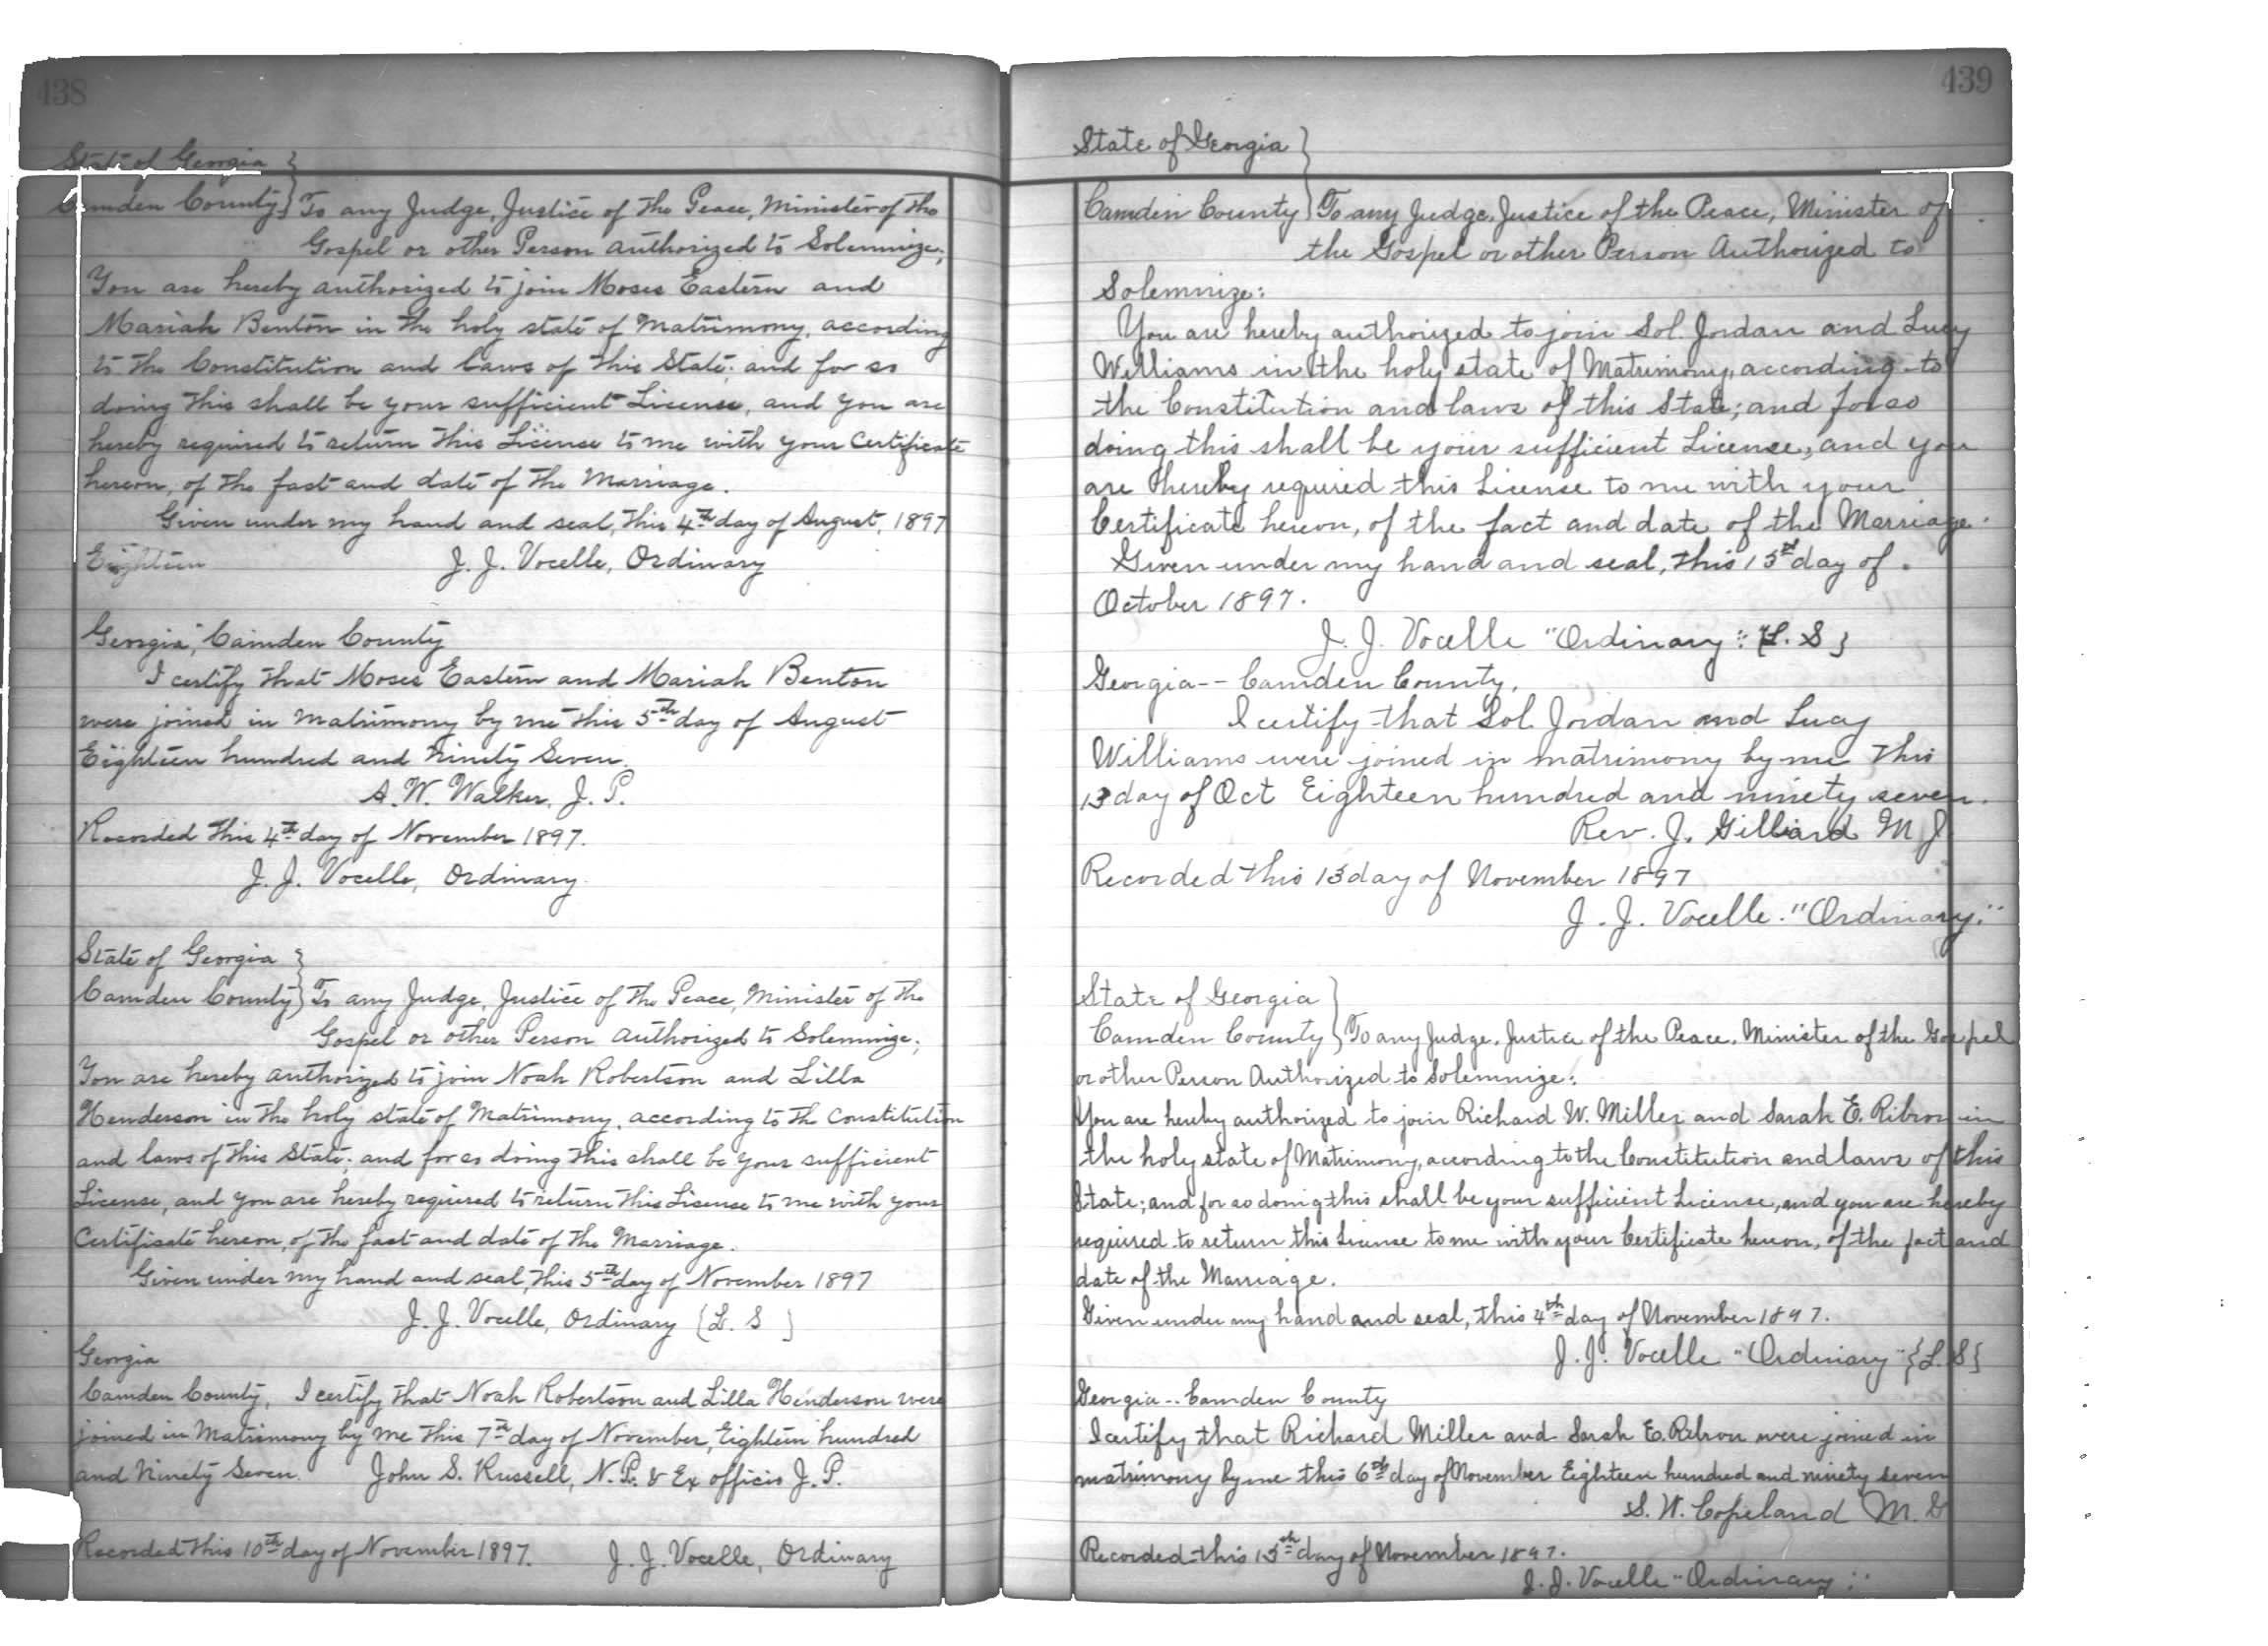 438
State of Georgia }
Camden County } To any Judge, Justice of the Peace, Minister of the
Gospel or other Person authorized to Solemnize;
You are hereby authorized to join Moses Eastern and
Mariah Benton in the holy state of Matrimony, according
to the Constitution and laws of this State; and for so
doing this shall be your sufficient License, and you are
hereby required to return this License to me with your Certificate
hereon, of the fact and date of the Marriage.
Given under my hand and seal, this 4th day of August, 1897
Eighteen J. J. Vocelle, Ordinary
Georgia, Camden County
I certify that Moses Eastern and Mariah Benton
were joined in matrimony by me this 5th day of August
Eighteen hundred and Ninety Seven.
A. W. Walker, J. P.
Recorded this 4th day of November 1897.
J. J. Vocelle, Ordinary.
State of Georgia }
Camden County } To any Judge, Justice of the Peace, Minister of the
Gospel or other Person authorized to Solemnize;
You are hereby authorized to join Noah Robertson and Lilla
Henderson in the holy state of Matrimony, according to the Constitution
and laws of this State; and for so doing this shall be your sufficient
License, and you are hereby required to return this License to me with your
Certificate hereon, of the fact and date of the Marriage.
Given under my hand and seal, this 5th day of November 1897
J. J. Vocelle, Ordinary {L. S }
Georgia
Camden County, I certify that Noah Robertson and Lilla Henderson were
joined in Matrimony by me this 7th day of November, Eighteen hundred
and Ninety Seven. John S. Russell, N. P. & Ex officio J. P.
Recorded this 10th day of November 1897. J. J. Vocelle, Ordinary
439
State of Georgia }
Camden County } To any Judge, Justice of the Peace, Minister of
the Gospel or other Person Authorized to
Solemnize:
You are hereby authorized to join Sol. Jordan and Lucy
Williams in the holy state of Matrimony, according to
the Constitution and laws of this State; and for so
doing this shall be your sufficient License, and you
are hereby required this License to me with your
Certificate hereon, of the fact and date of the Marriage.
Given under my hand and seal, this 13th day of
October 1897.
J. J. Vocelle "Ordinary" {L. S }
Georgia -- Camden County.
I certify that Sol Jordan and Lucy
Williams were joined in matrimony by me this
13 day of Oct Eighteen hundred and ninety seven.
Rev. J. Gilliard M J
Recorded this 13 day of November 1897
J. J. Vocelle. "Ordinary."
State of Georgia }
Camden County } To any Judge, Justice of the Peace, Minister of the Gospel
or other Person Authorized to Solemnize:
You are hereby authorized to join Richard W. Miller and Sarah E. Ribron in
the holy state of Matrimony, according to the Constitution and laws of this
State; and for so doing this shall be your sufficient License, and you are hereby
required to return this License to me with your Certificate hereon, of the fact and
date of the Marriage.
Given under my hand and seal, this 4th day of November 1897.
J. J. Vocelle "Ordinary" {L. S}
Georgia -- Camden County
I certify that Richard Miller and Sarah E. Ribron were joined in
matrimony by me this 6th day of November Eighteen hundred and ninety seven
S. W. Copeland M. G
Recorded this 13th day of November 1897.
J. J. Vocelle "Ordinary"